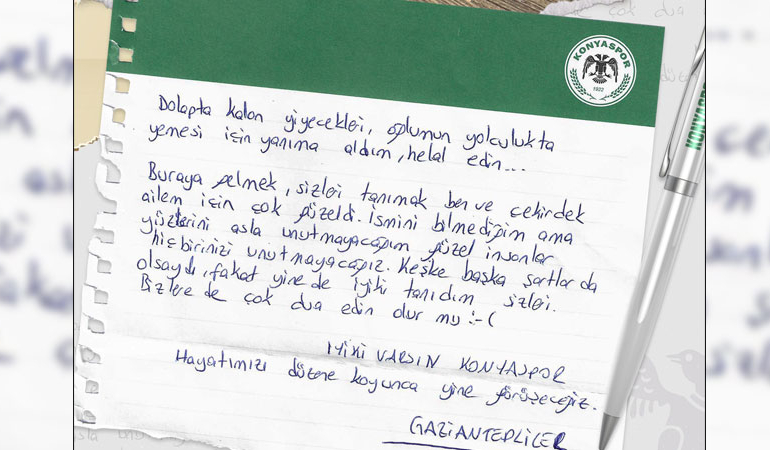 KONYASPOR
1922
Dolapta kalan yiyecekleri, oğlumun yolculukta
yemesi için yanıma aldım, helal edin...
Buraya gelmek, sizleri tanımak ben ve çekirdek
ailem için çok güzeldi. İsmini bilmediğim ama
yüzlerini asla unutmayacağım güzel insanlar
hiçbirinizi unutmayacağız. Keşke başka şartlarda
olsaydı, fakat yine de iyiki tanıdım sizleri.
Bizlere de çok dua edin olur mu :-(
İYİKİ VARSIN KONYASPOR
Hayatımızı düzene koyunca yine görüşeceğiz.
GAZİANTEPLİLER